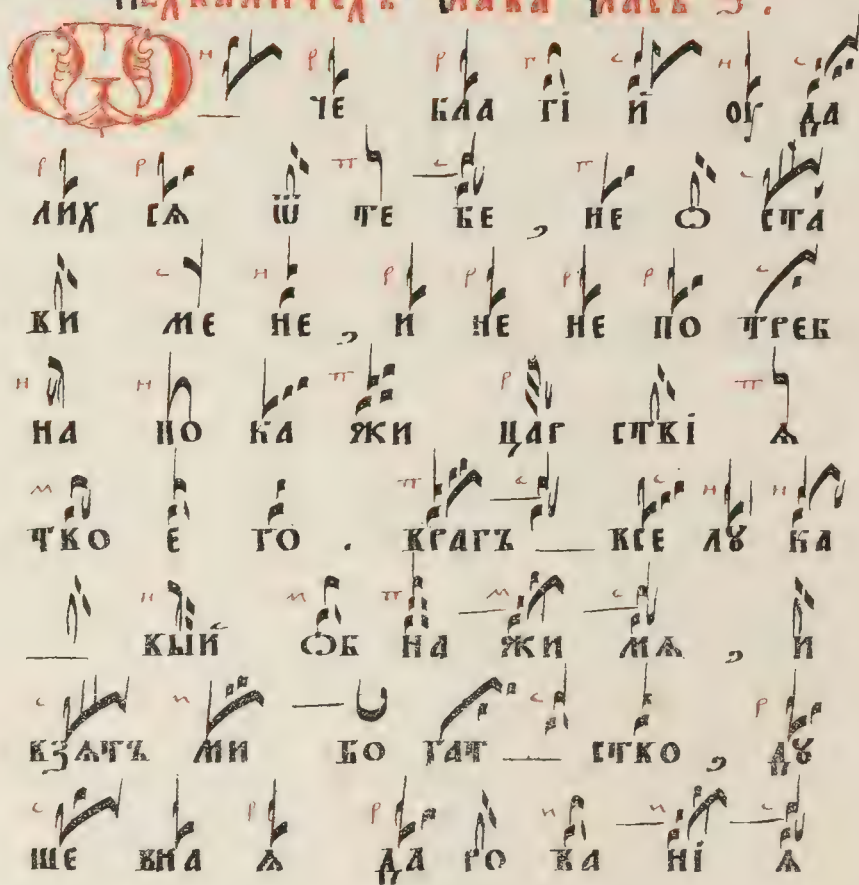 слава гласъ ѕ .
Ѡ че бла гі й оу да
лих сѧ ѿ те бе , не ѡ ста
ви ме не , и не не по треб
на по ка жи цар стві ѧ
тво е го . врагъ все лꙋ ка
вый ѡб на жи мѧ , и
взѧтъ ми бо гат ство , дꙋ
ше вна ѧ да ро ва ні ѧ